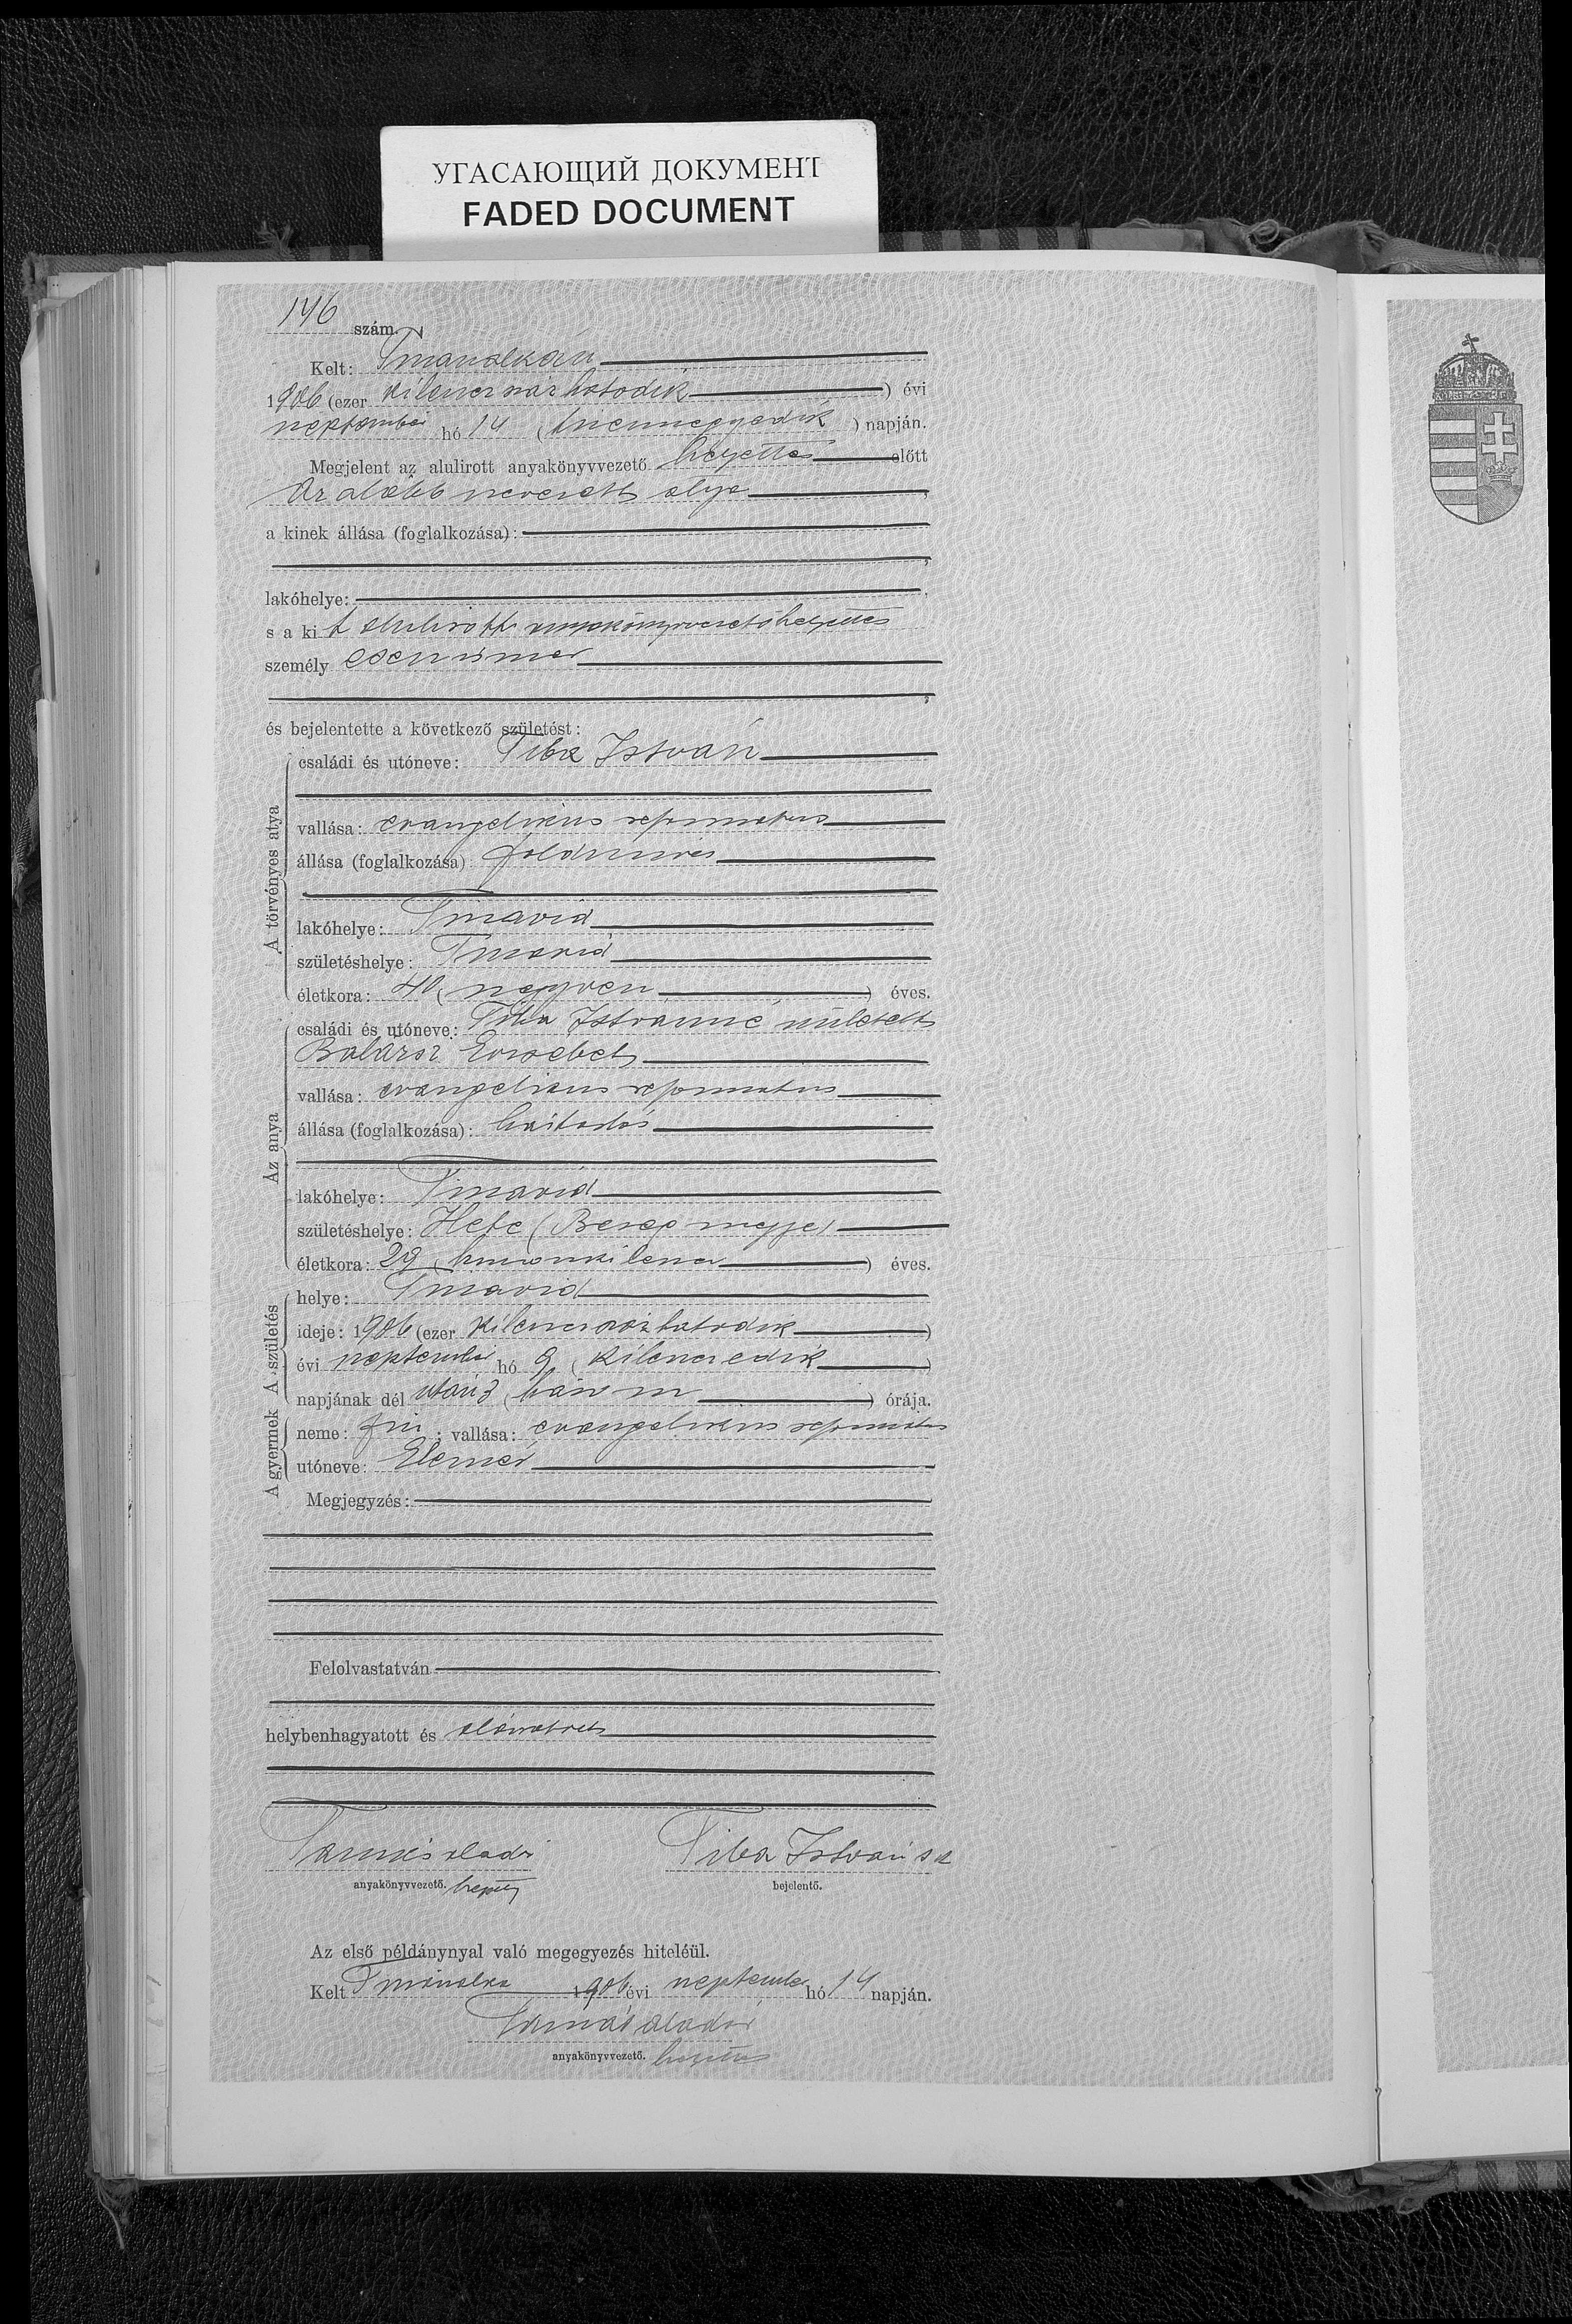 УГАСАЮЩИЙ ДОКУМЕНТ
FADED DOCUMENT
146 szám.
Kelt: Tiszamalkán
1906 (ezer kilenczszázhatodik) évi
szeptember hó 14 (tizennegyedik) napján.
Megjelent az alulirott anyakönyvvezető helyettes előtt
az alább nevezett atya,
a kinek állása (foglalkozása):
lakóhelye:
s a kit alulirott anyakönyvvezetőhelyettes
személyesen ismer
és bejelentette a következő születést:
A törvényes atya
családi és utóneve: Tiba István
vallása: evangelikus reformatus
állása (foglalkozása): földmives
lakóhelye: Tiszavid
születéshelye: Tiszavid
életkora: 40 (negyven) éves.
Az anya
családi és utóneve: Tiba Istvánné született
Balázsi Erzsebet
vallása: evangelikus reformatus
állása (foglalkozása): háztartás
lakóhelye: Tiszavid
születéshelye: Hete (Bereg megye)
életkora: 29 (huszonkilencz) éves.
A születés
helye: Tiszavid
ideje: 1906 (ezer kilenczszázhatodik)
évi szeptember hó 9 (kilenczedik)
napjának dél után 3 (három) órája.
A gyermek
neme: fiú; vallása: evangelikus reformatus
utóneve: Elemér
Megjegyzés:
Felolvastatván
helybenhagyatott és aláiratott
Tamás Aladár Tiba István s k
anyakönyvvezető. helyettes bejelentő.
Az első példánynyal való megegyezés hiteléül.
Kelt 1906 évi szeptember hó 14 napján.
Tamás Aladár
anyakönyvvezető. helyettes